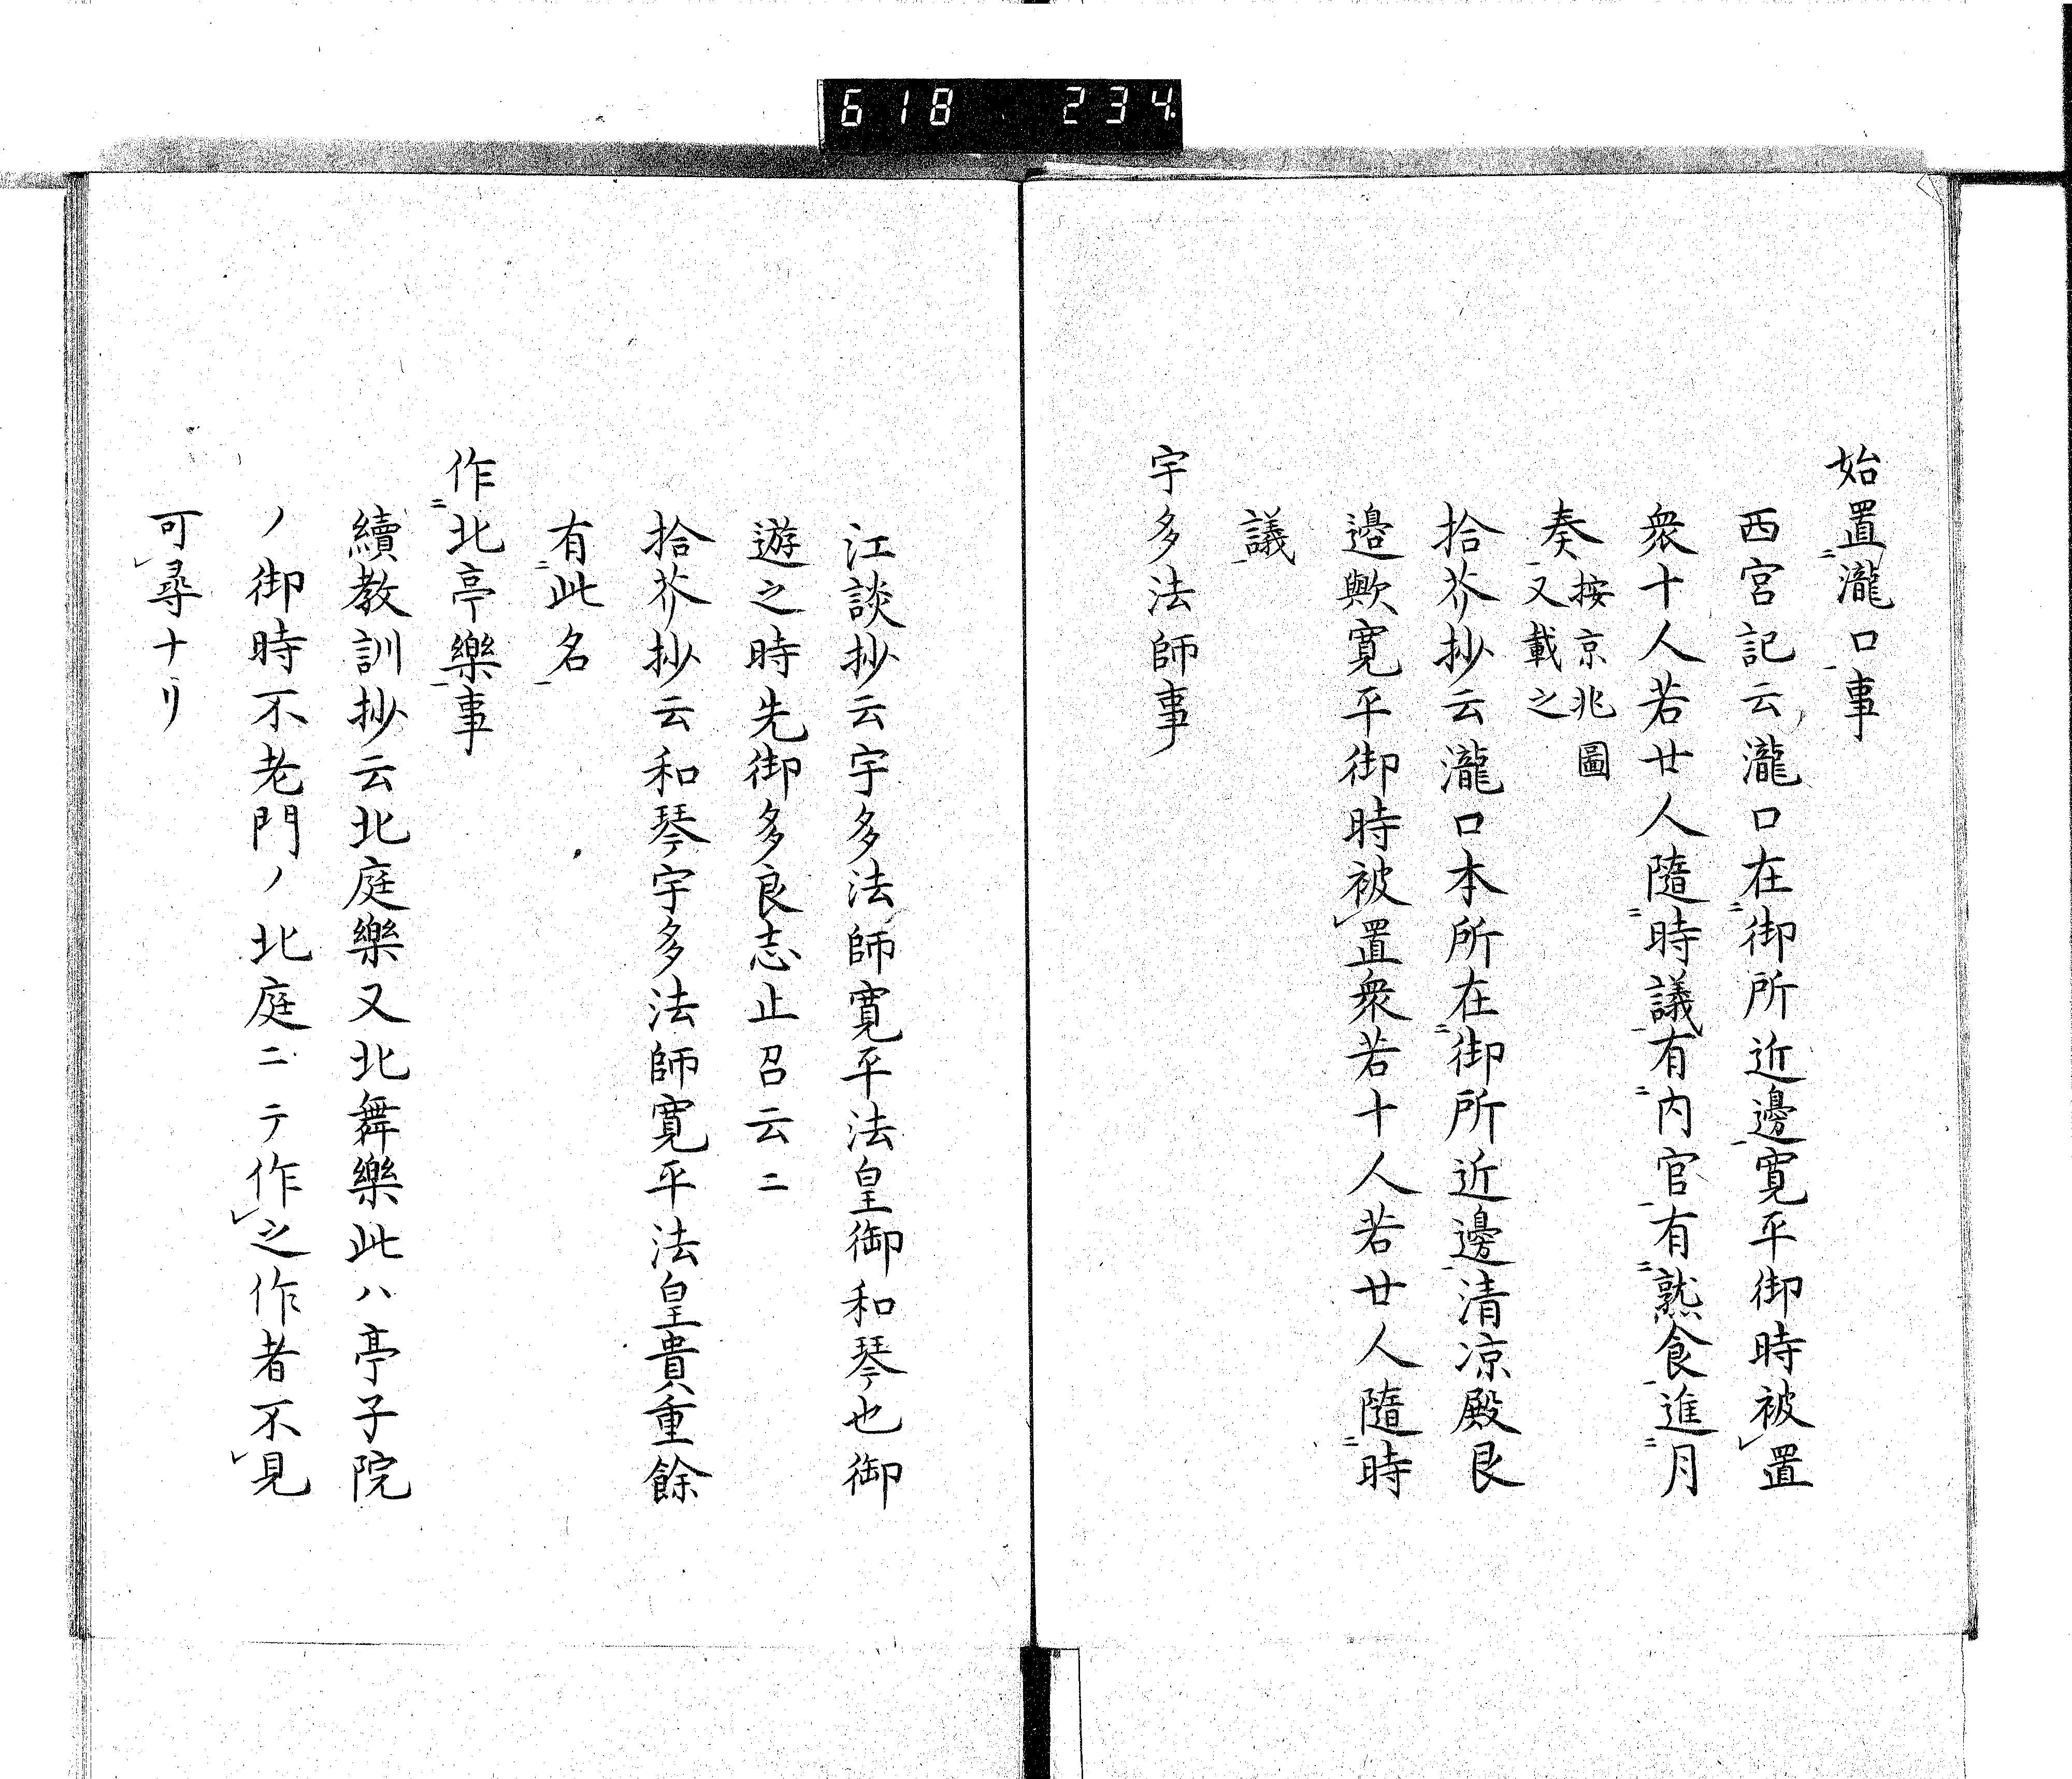 618 234.
始置瀧口事
西宮記云瀧口在御所近邊寛平御時被置
衆十人若廿人隨時議有内官有熟食進月
奏按京兆圖
又載之
拾芥抄云瀧口本所在御所近邊清凉殿艮
邉歟寛平御時被置衆若十人若廿人隨時
議
宇多法師事
江談抄云宇多法師寛平法皇御和琴也御
遊之時先御多良志止召云ニ
拾芥抄云和琴宇多法師寛平法皇貴重餘
有此名
作北亭樂事
續教訓抄云北庭樂又北舞樂此ハ亭子院
ノ御時不老門ノ北庭ニテ作之作者不見
可尋ナリ